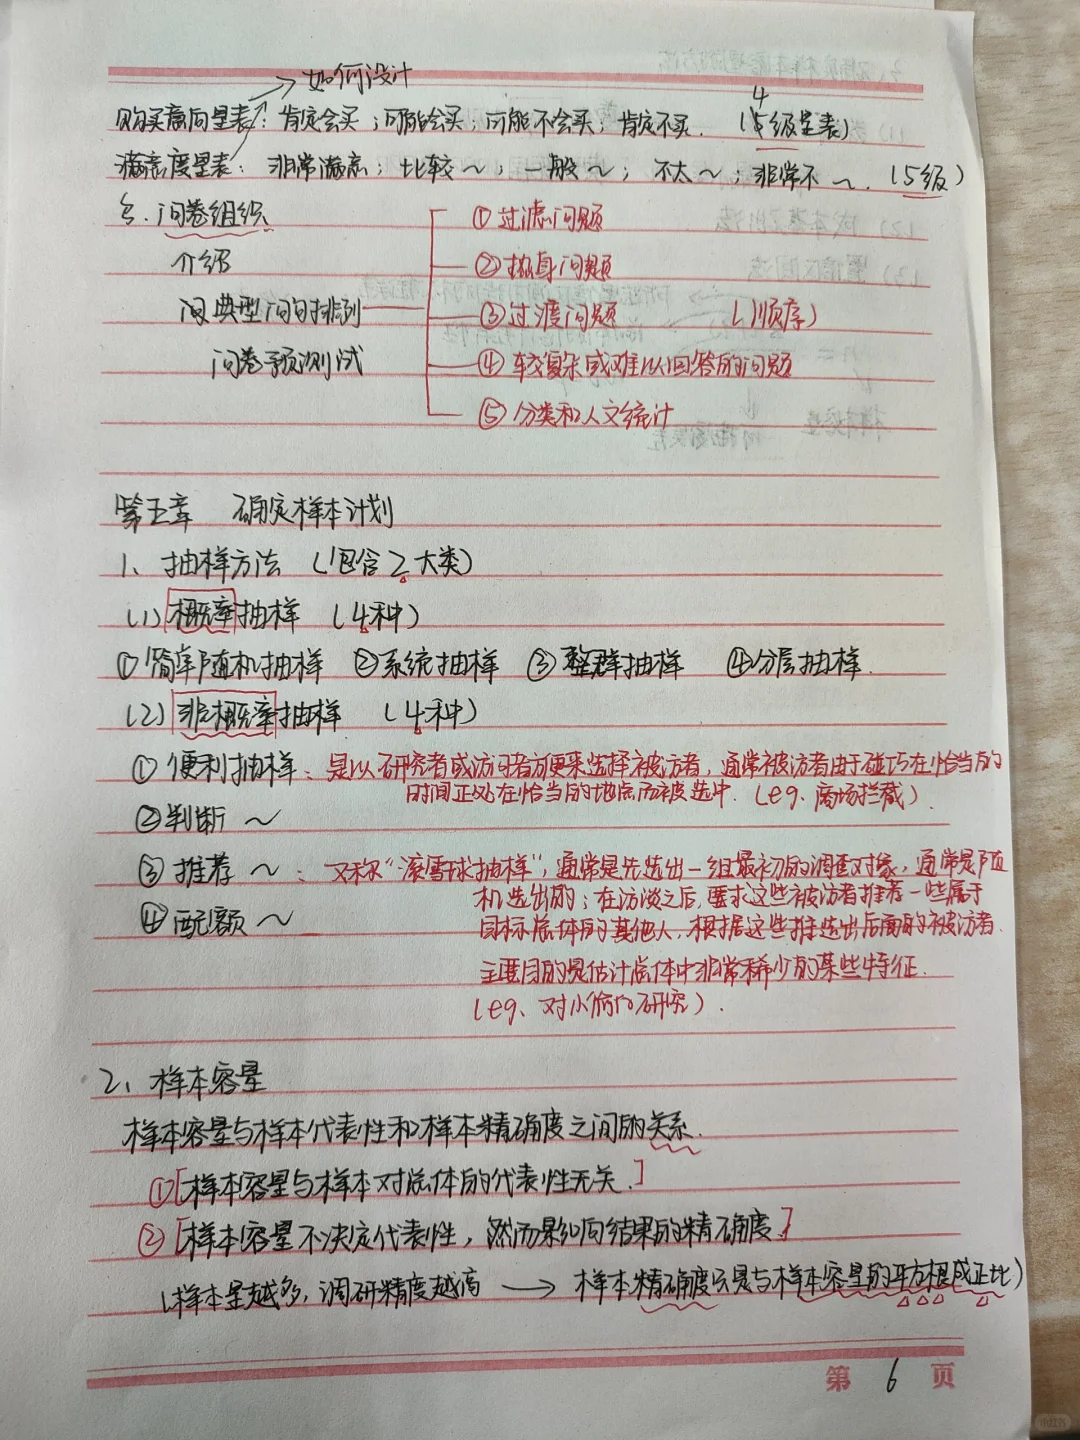 如何设计
购买意向量表：肯定会买；可能会买；可能不会买；肯定不买．（4级量表）
满意度量表：非常满意；比较～；一般～；不太～；非常不～．（5级）
问卷组织
①过滤问题
介绍
②热身问题
典型问句排列
③过渡问题 （顺序）
问卷预测试
④较复杂或难以回答的问题
⑤分类和人文统计
第五章 确定样本计划
1、抽样方法（包含2大类）
(1)概率抽样（4种）
①简单随机抽样 ②系统抽样 ③整群抽样 ④分层抽样．
(2)非概率抽样（4种）
①便利抽样：是以研究者或访问者方便来选择被访者，通常被访者由于碰巧在恰当的
时间正处在恰当的地点而被选中．（eg、商场拦截）．
②判断～
③推荐～：又称“滚雪球抽样”，通常是先选出一组最初的调查对象，通常是随
机选出的；在访谈之后，要求这些被访者推荐一些属于
④配额～
目标总体的其他人，根据这些推选出后面的被访者．
主要目的是估计总体中非常稀少的某些特征．
（eg、对小偷的研究）．
2、样本容量
样本容量与样本代表性和样本精确度之间的关系．
①[样本容量与样本对总体的代表性无关．]
②[样本容量不决定代表性，然而影响结果的精确度]
（样本量越多，调研精度越高 → 样本精确度只是与样本容量的平方根成正比）
第 6 页